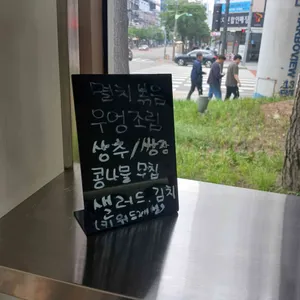 멸치볶음
무엉조림
상추/쌈장
콩나물 무침
샐러드.김치
(키위드레싱)